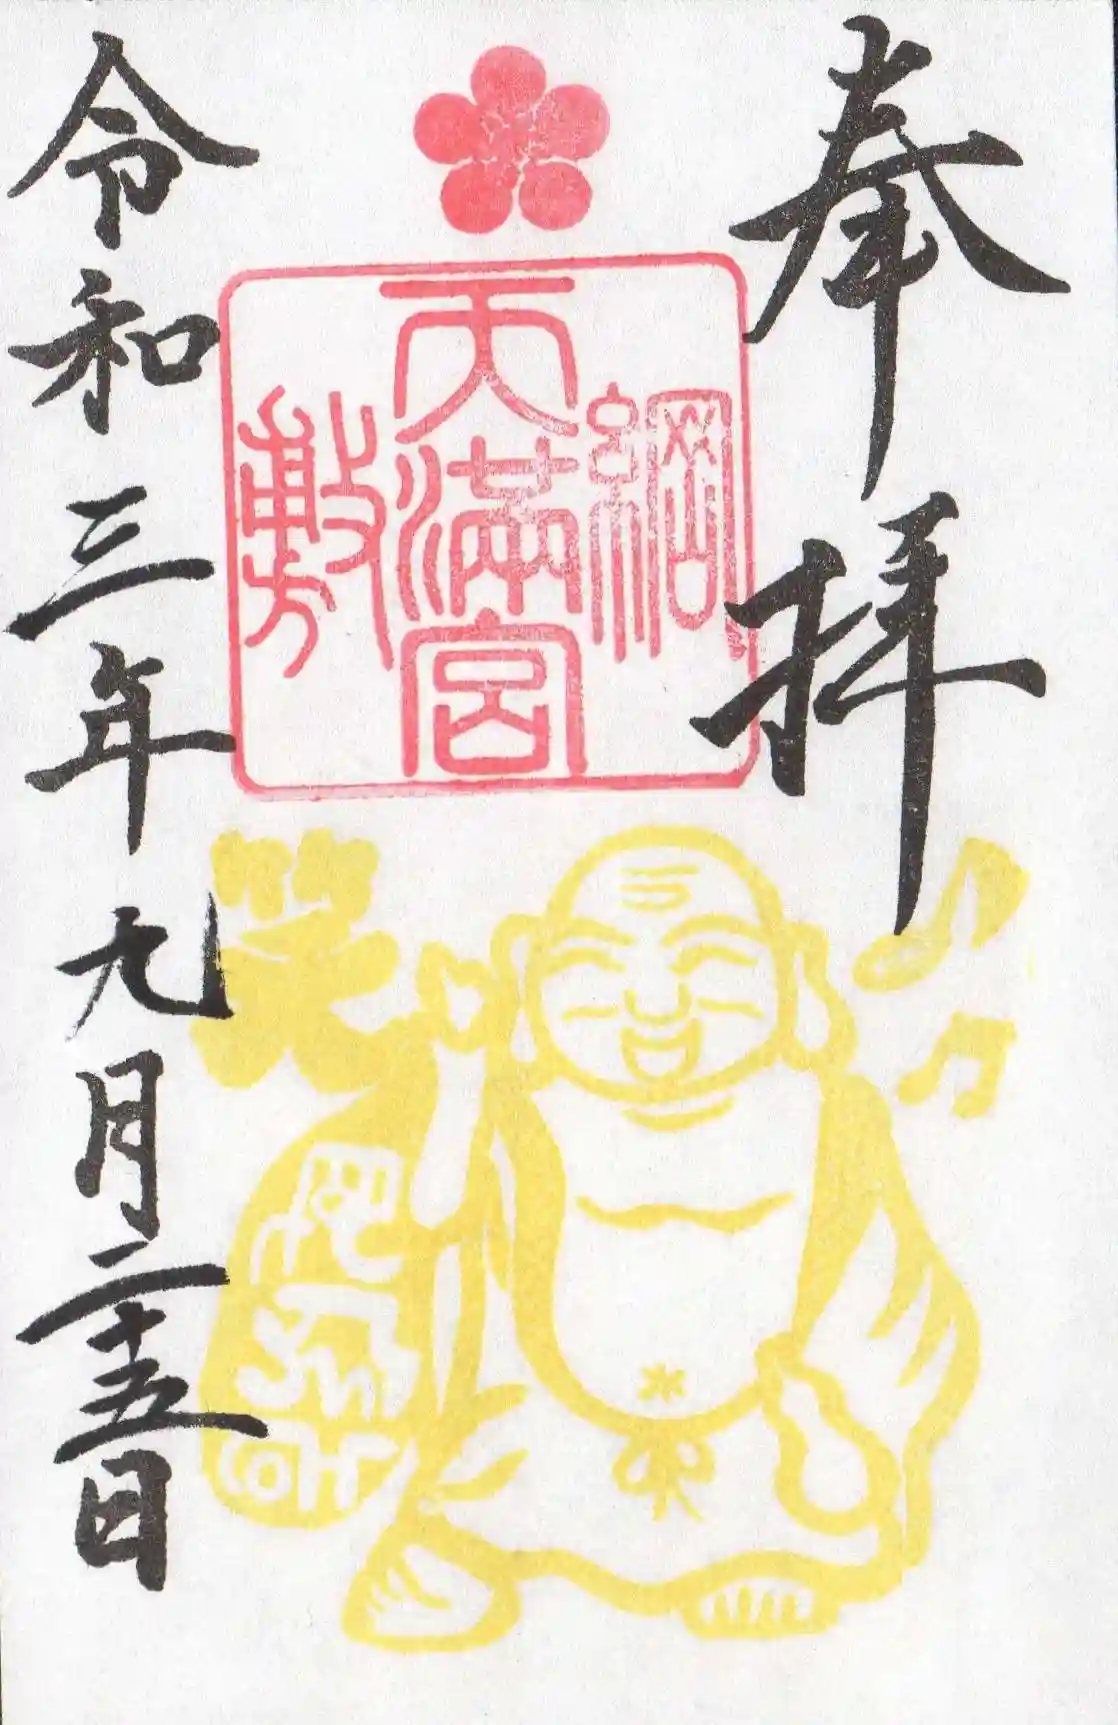 奉拝
綱敷
天満宮
笑
令和三年九月二十五日